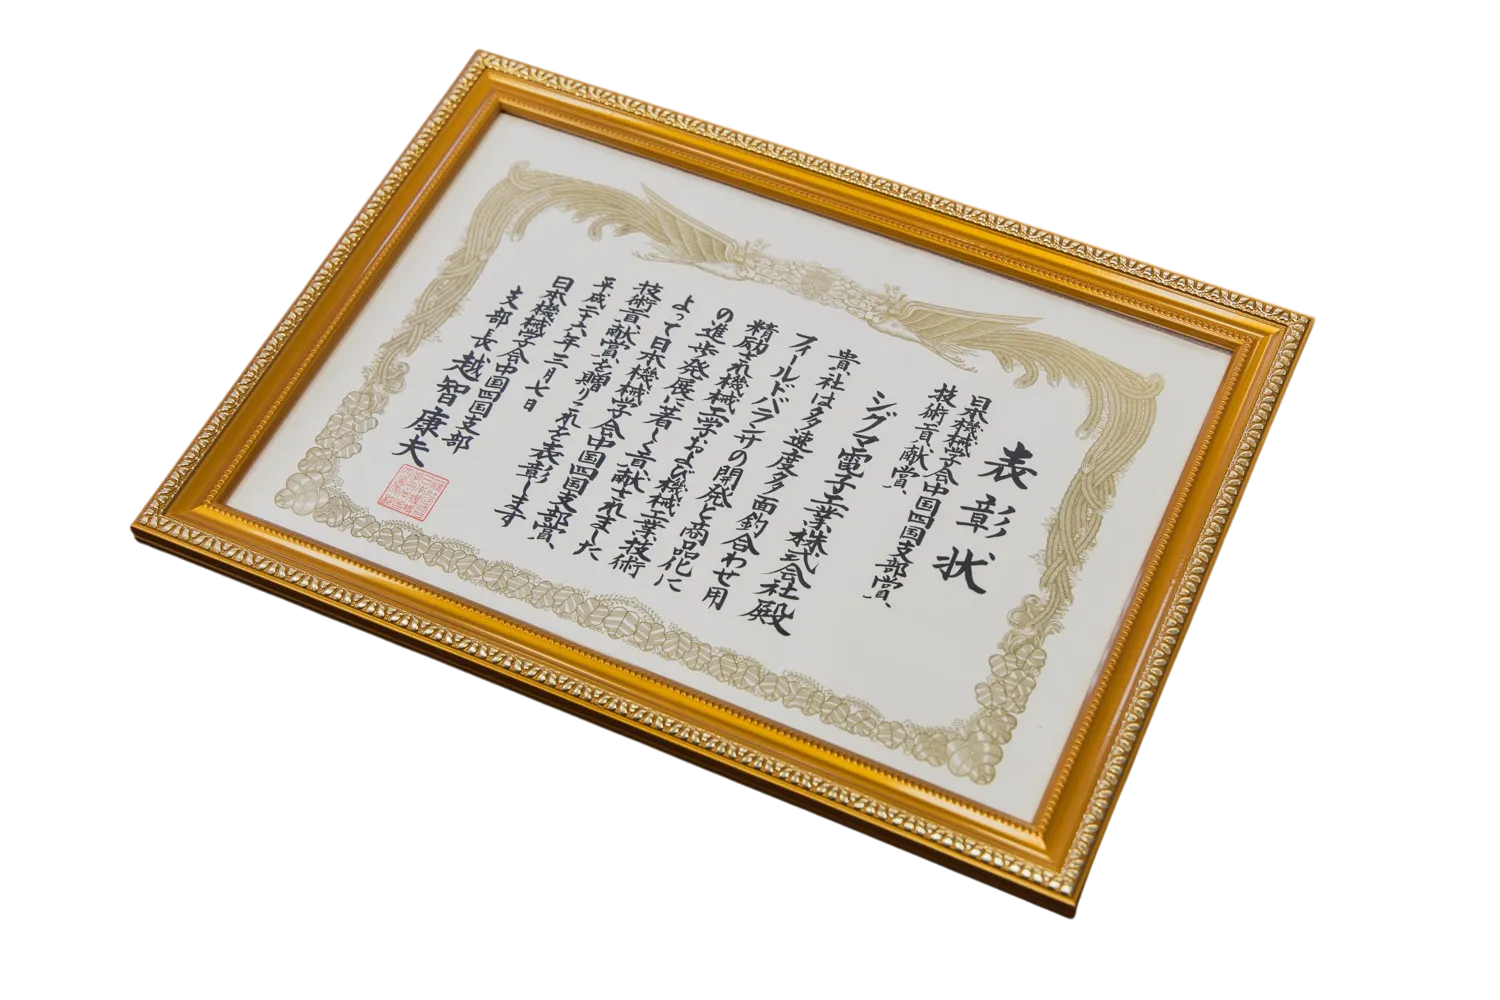 表彰状
日本機械学会中国四国支部賞、
技術貢献賞、
シグマ電子工業株式会社殿
貴社は多速度多面釣合わせ用
フィールドバランサの開発と商品化に
精励され機械工学および機械工業技術
の進歩発展に著しく貢献されました
よって日本機械学会中国四国支部賞、
技術貢献賞、を贈りこれを表彰します
平成二十六年三月七日
日本機械学会中国四国支部
支部長 越智康夫